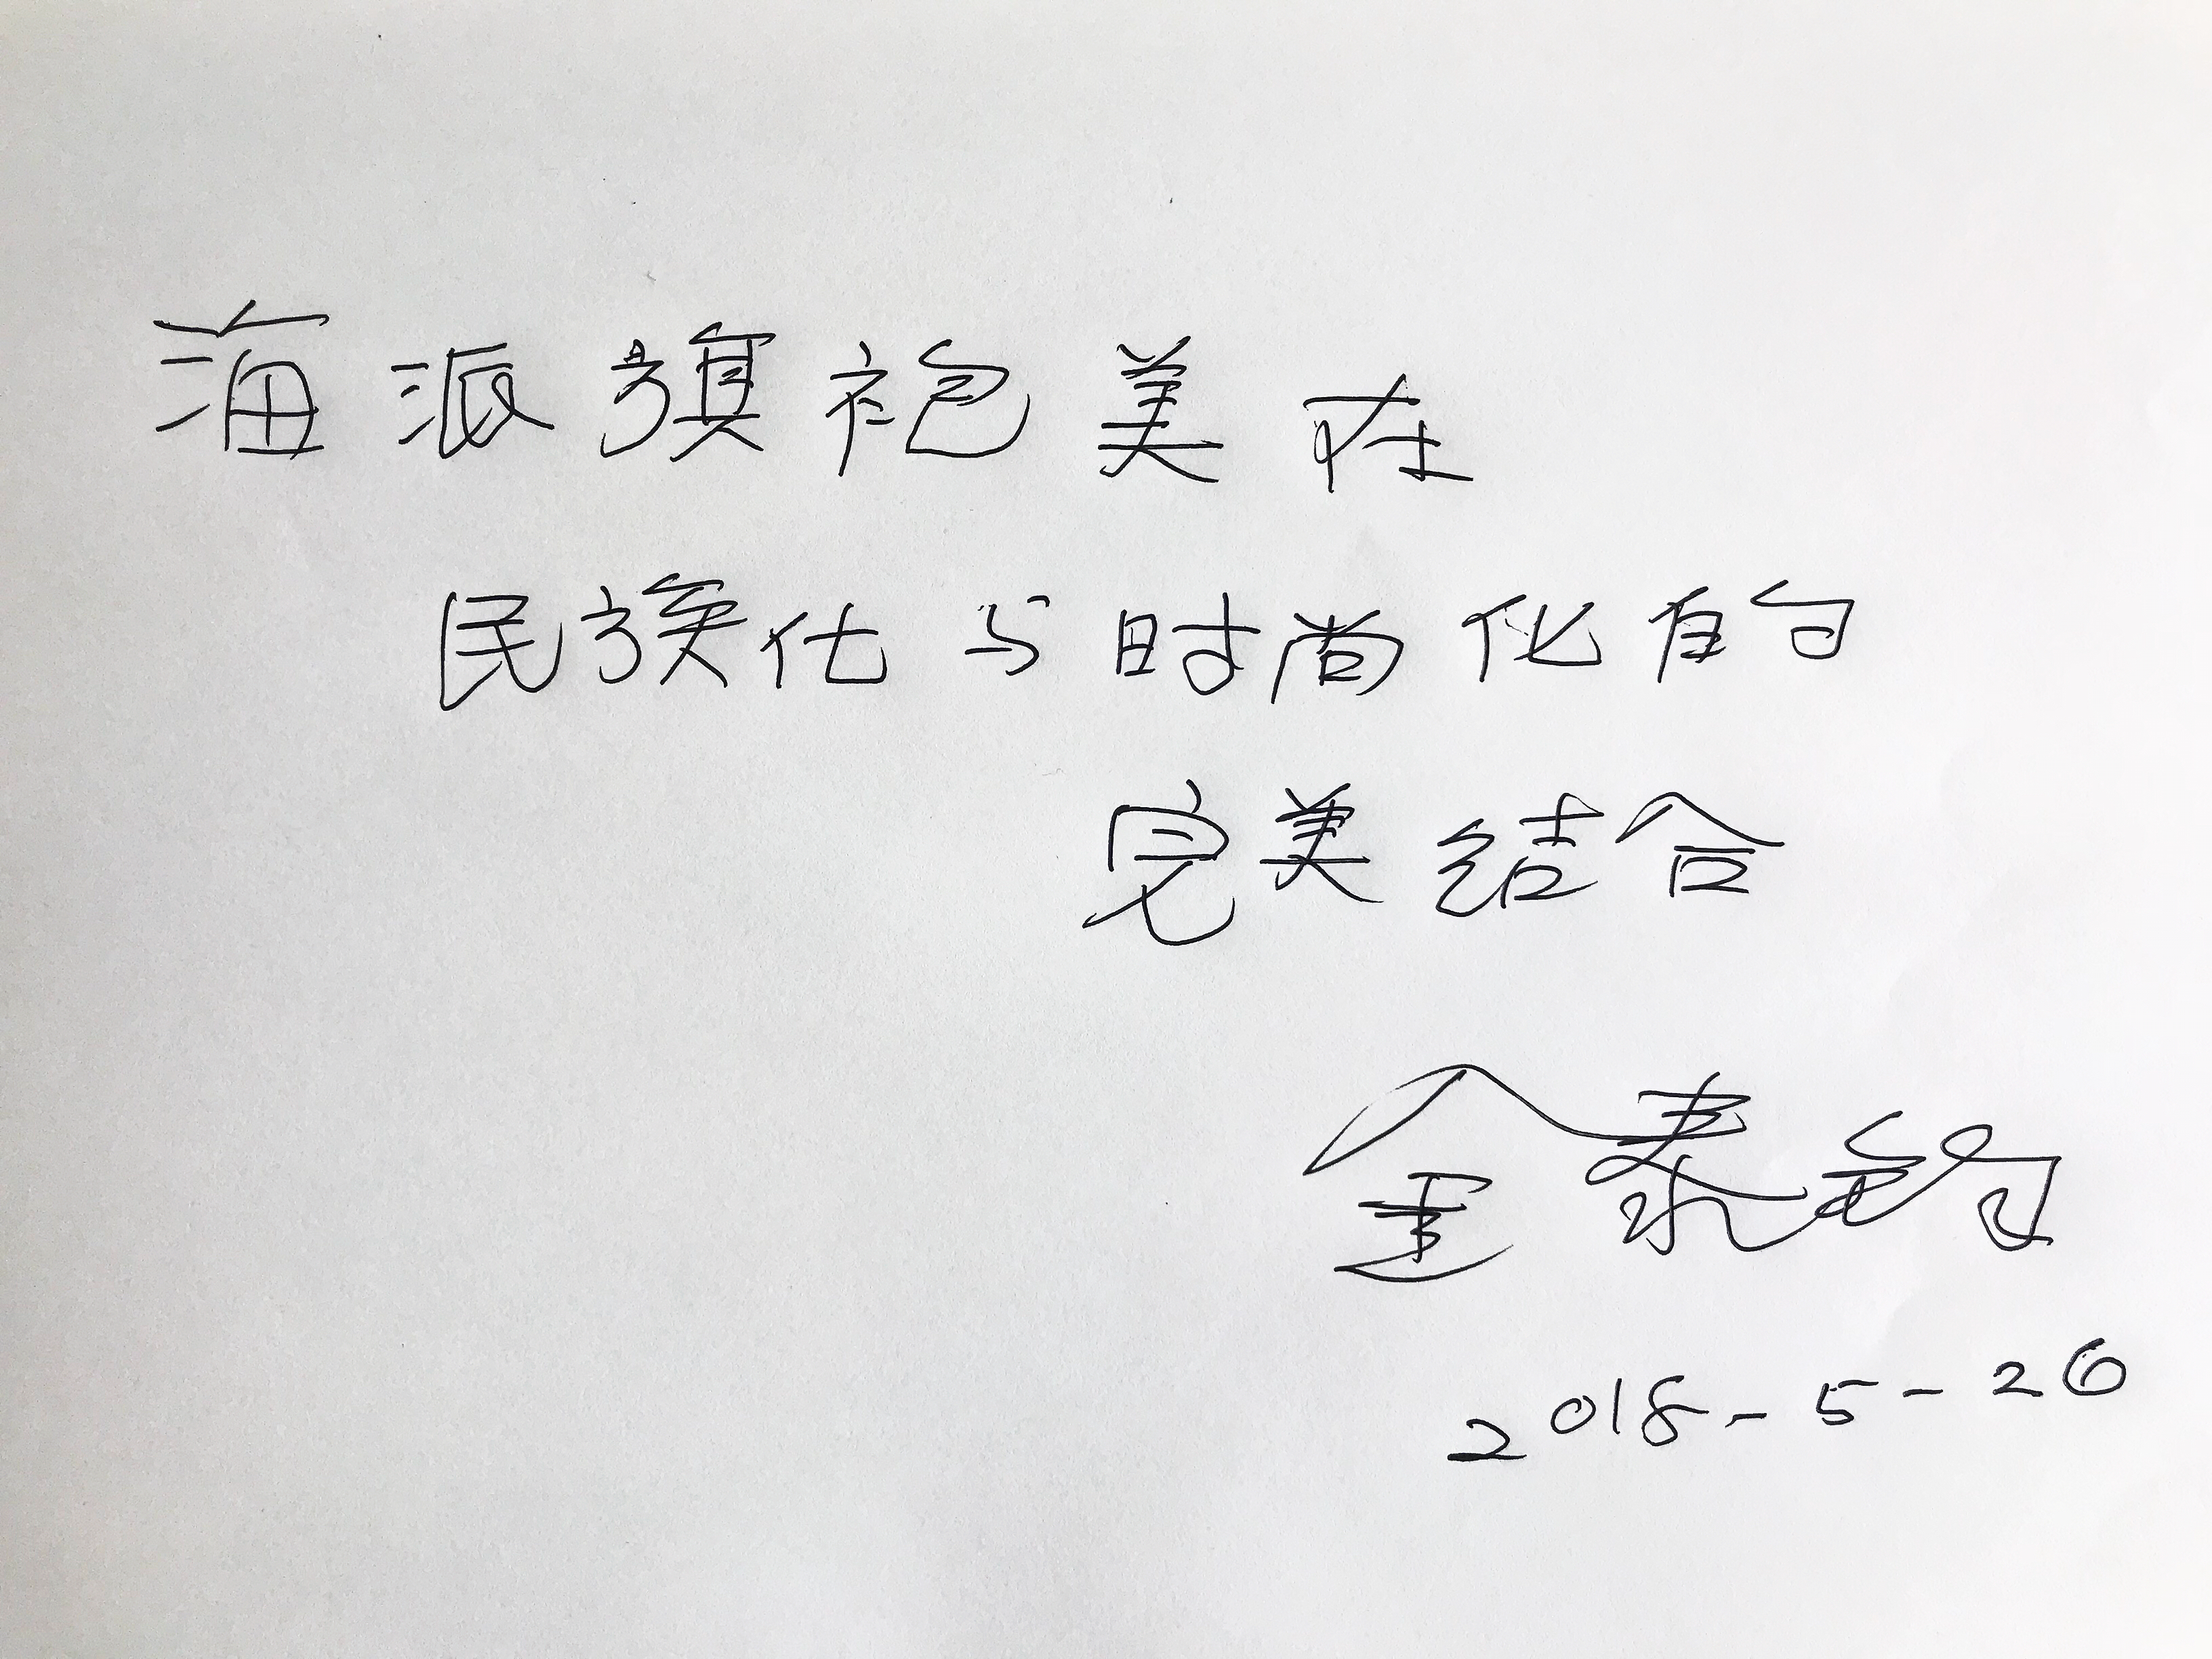 海派旗袍美在
民族化与时尚化的
完美结合
金泰钧
2018-5-26